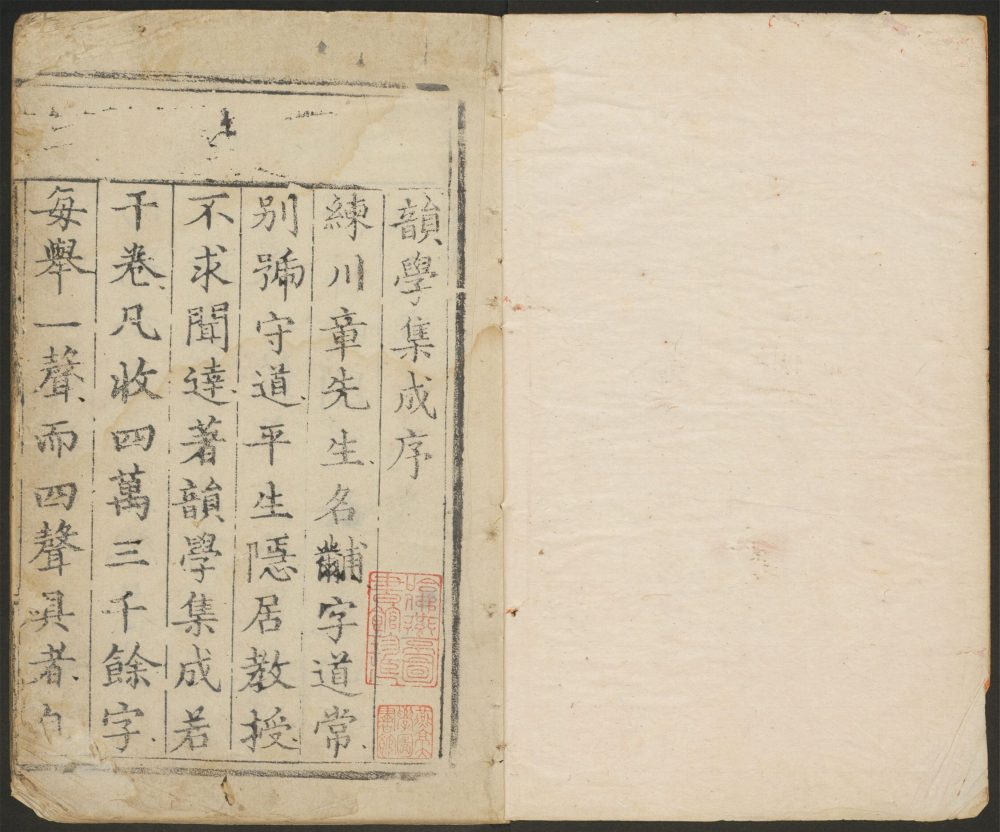 韻學集成序
練川章先生名黼字道常
別號守道平生隱居教授
不求聞達著韻學集成若
干卷凡收四萬三千餘字
每舉一聲而四聲具者自
哈佛燕京圖書館珍藏